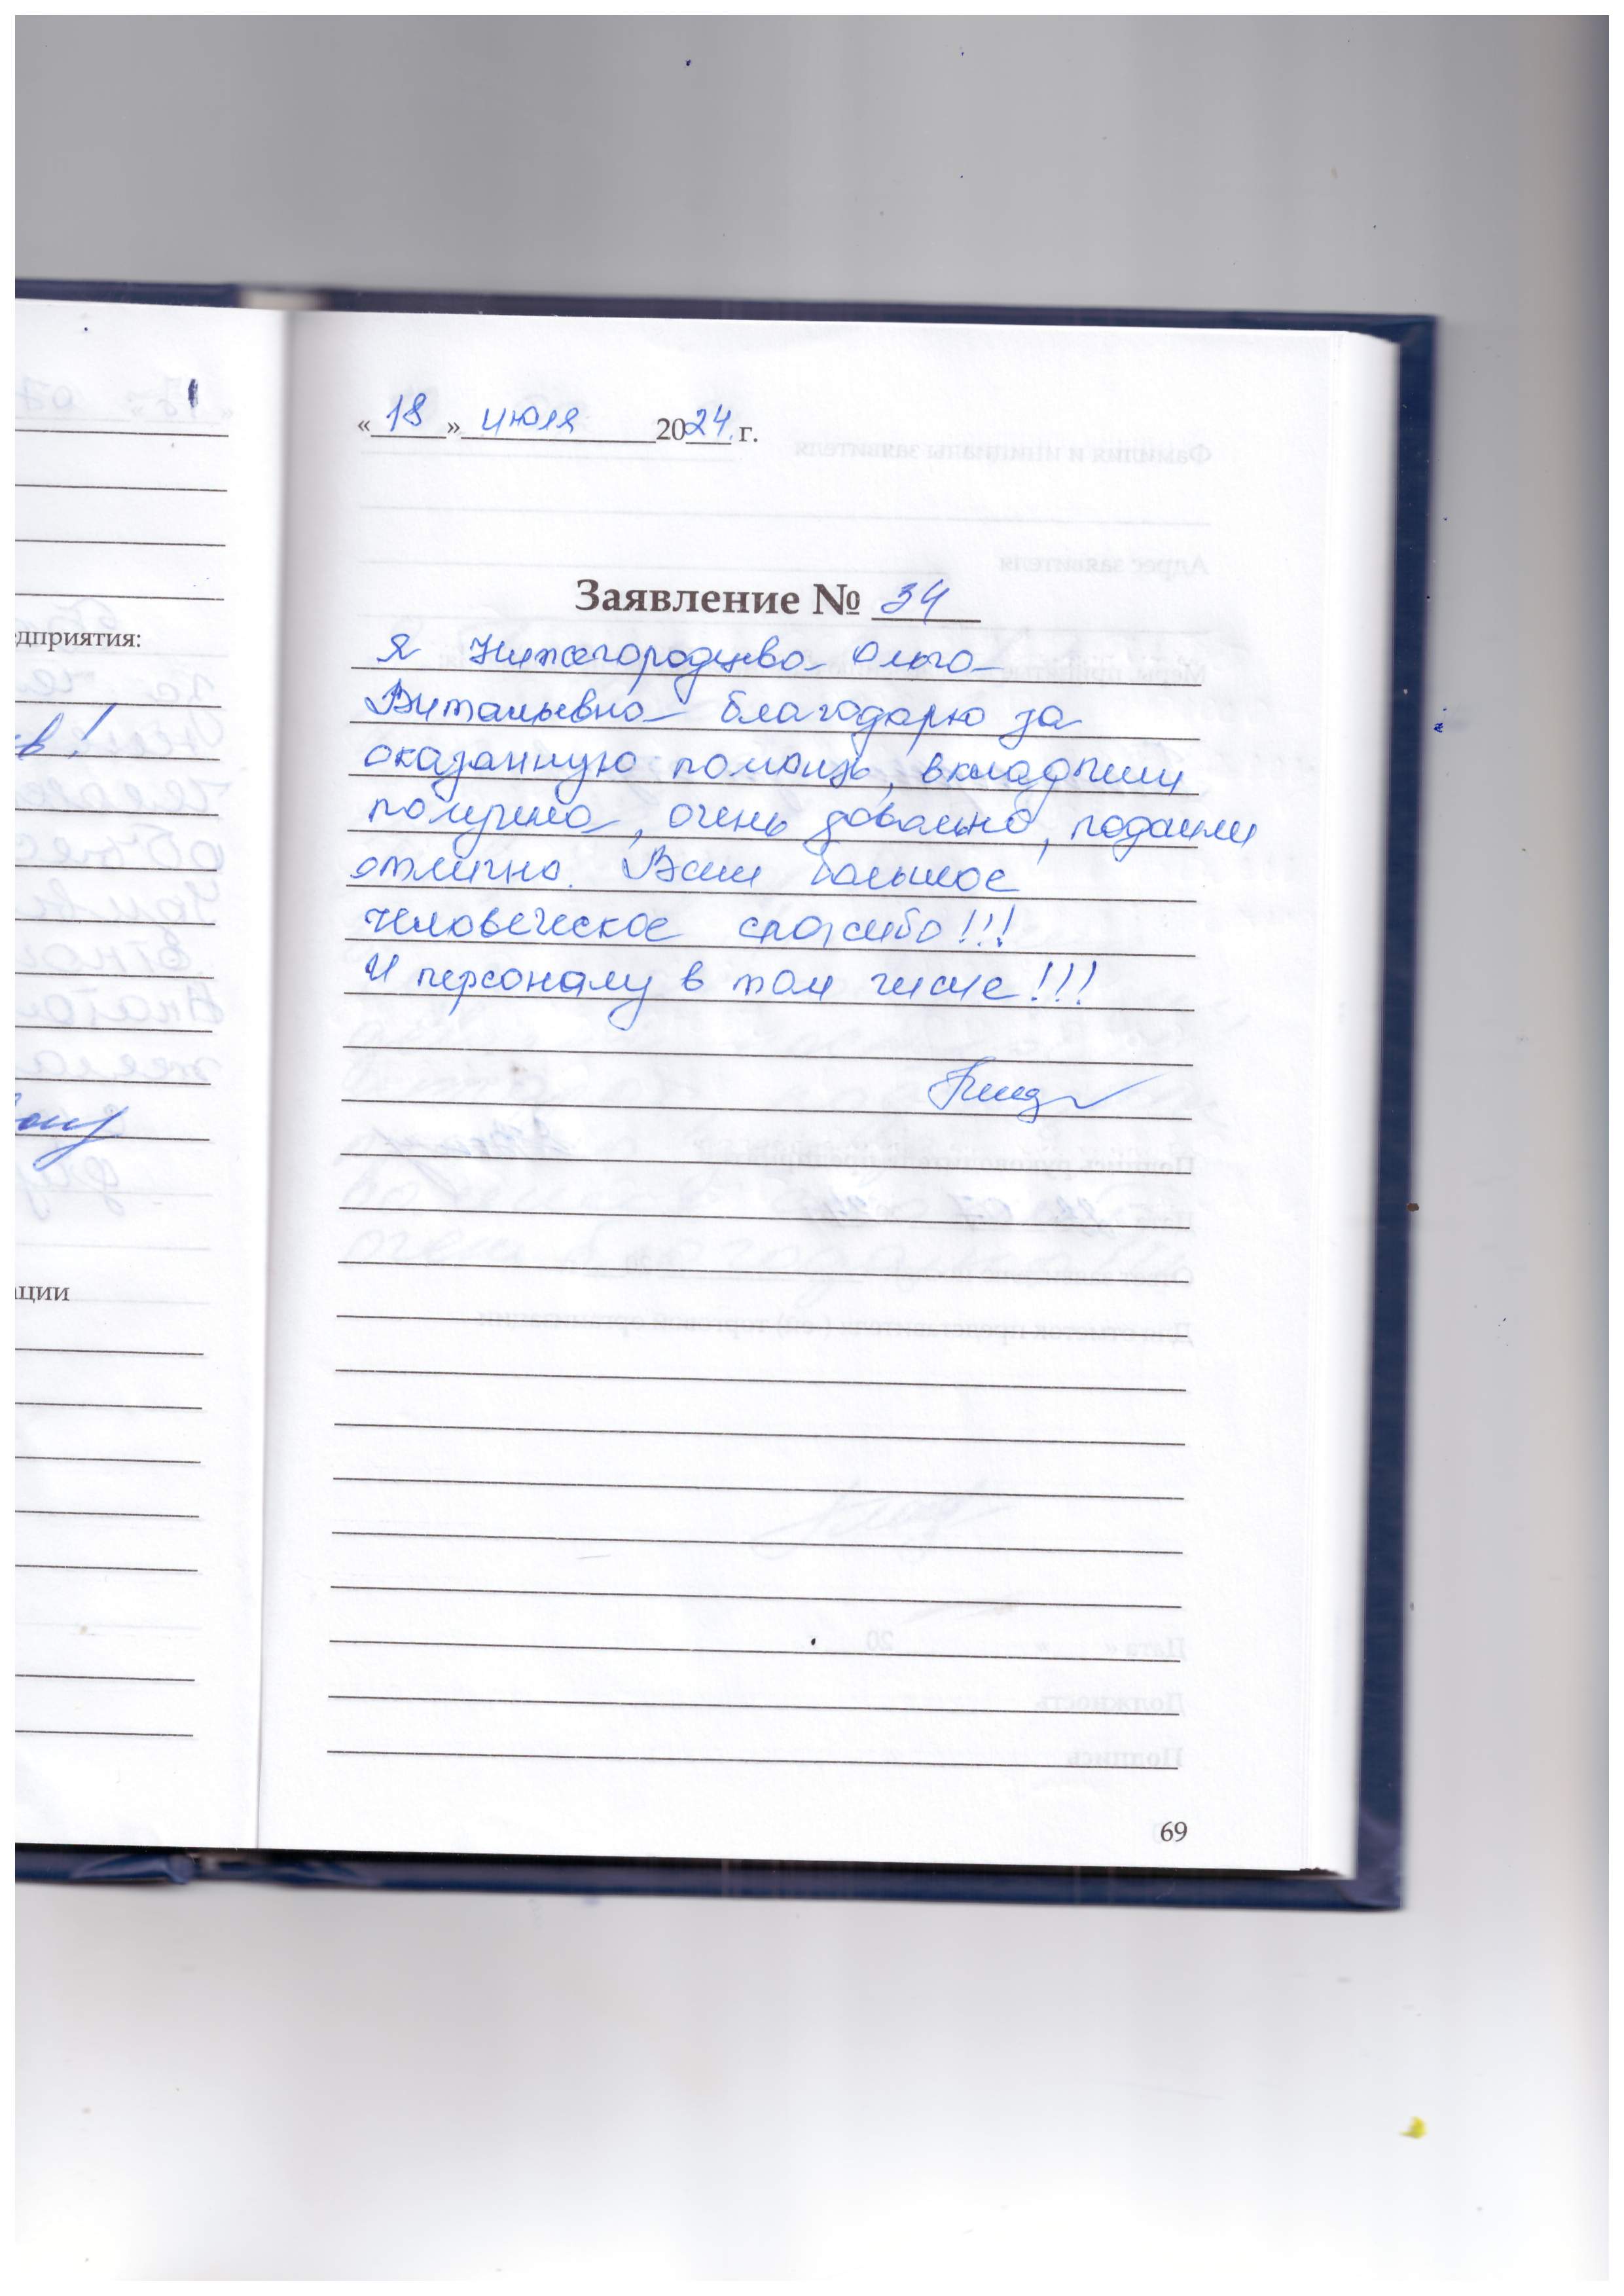 «18» июля 2024 г.
Заявление № 34
Я Нижегородцева Ольга
Витальевна благодарю за
оказанную помощь, вкладыши
получила, очень довольна,
отлично. Вам большое
человеческое спасибо!!!
И персоналу в том числе!!!
едприятия:
ции
69